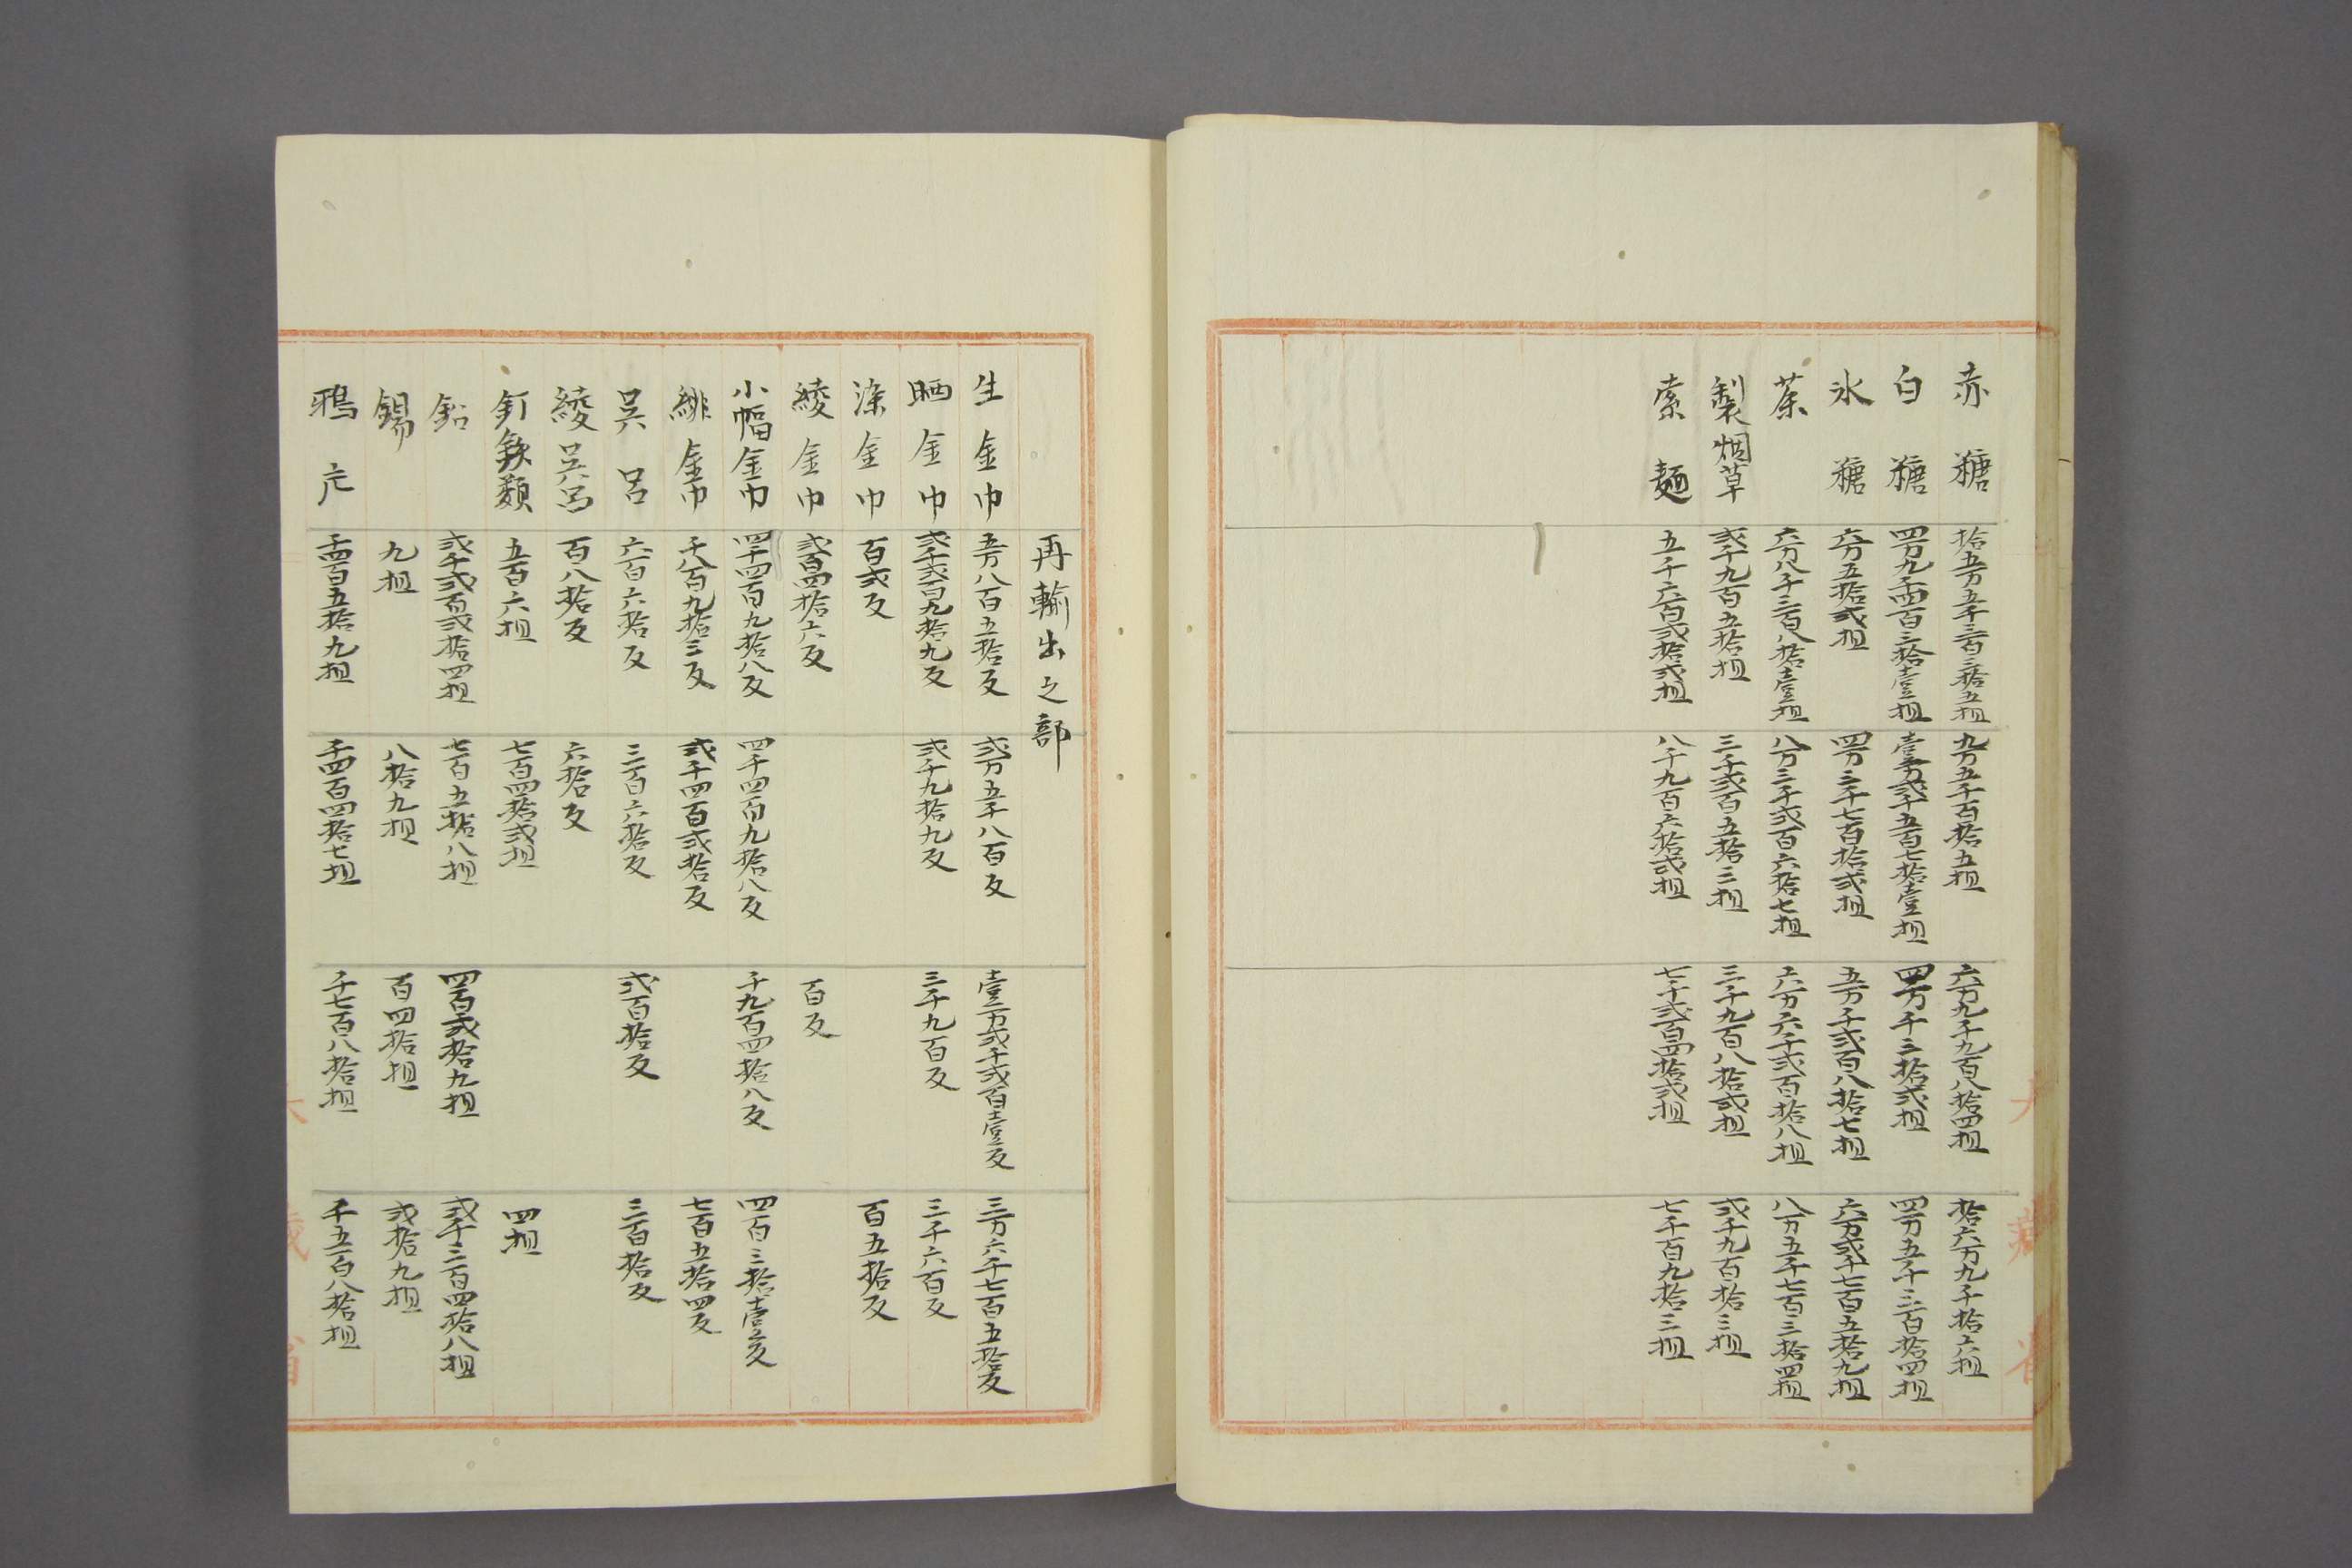 赤糖 拾五万五千三百三拾五担 九万五千百拾五担 六万九千九百八拾四担 拾六万九千拾六担
白糖 四万九千四百三拾壹担 壹万貳千五百七拾壹担 四万千三拾貳担 四万五千三百拾四担
氷糖 六万五拾貳担 四万三千七百拾貳担 五万千貳百八拾七担 六万貳千七百五拾九担
茶 六万八千三百八拾壹担 八万三千貳百六拾七担 六万六千貳百拾八担 八万五千七百三拾四担
製烟草 貳千九百五拾担 三千貳百五拾三担 三千九百八拾貳担 貳千九百拾三担
索麺 五千六百貳拾貳担 八千九百六拾貳担 七千貳百四拾貳担 七千百九拾三担
再輸出之部
生金巾 五万八百五拾反 貳万五千八百反 壹万貳千貳百壹反 三万六千七百五拾反
晒金巾 貳千貳百九拾九反 貳千九拾九反 三千九百反 三千六百反
染金巾 百貳反 百五拾反
綾金巾 貳百四拾六反 百反
小幅金巾 四千四百九拾八反 四千四百九拾八反 千九百四拾八反 四百三拾壹反
緋金巾 千八百九拾三反 貳千四百貳拾反 七百五拾四反
呉呂 六百六拾反 三百六拾反 貳百拾反 三百拾反
綾呉呂 百八拾反 六拾反
釘鉄類 五百六担 七百四拾貳担 四担
鉛 貳千貳百貳拾四担 七百五拾八担 四百貳拾九担 貳千三百四拾八担
錫 九担 八拾九担 百四拾担 貳拾九担
鴉片 千四百五拾九担 千四百四拾七担 千七百八拾担 千五百八拾担